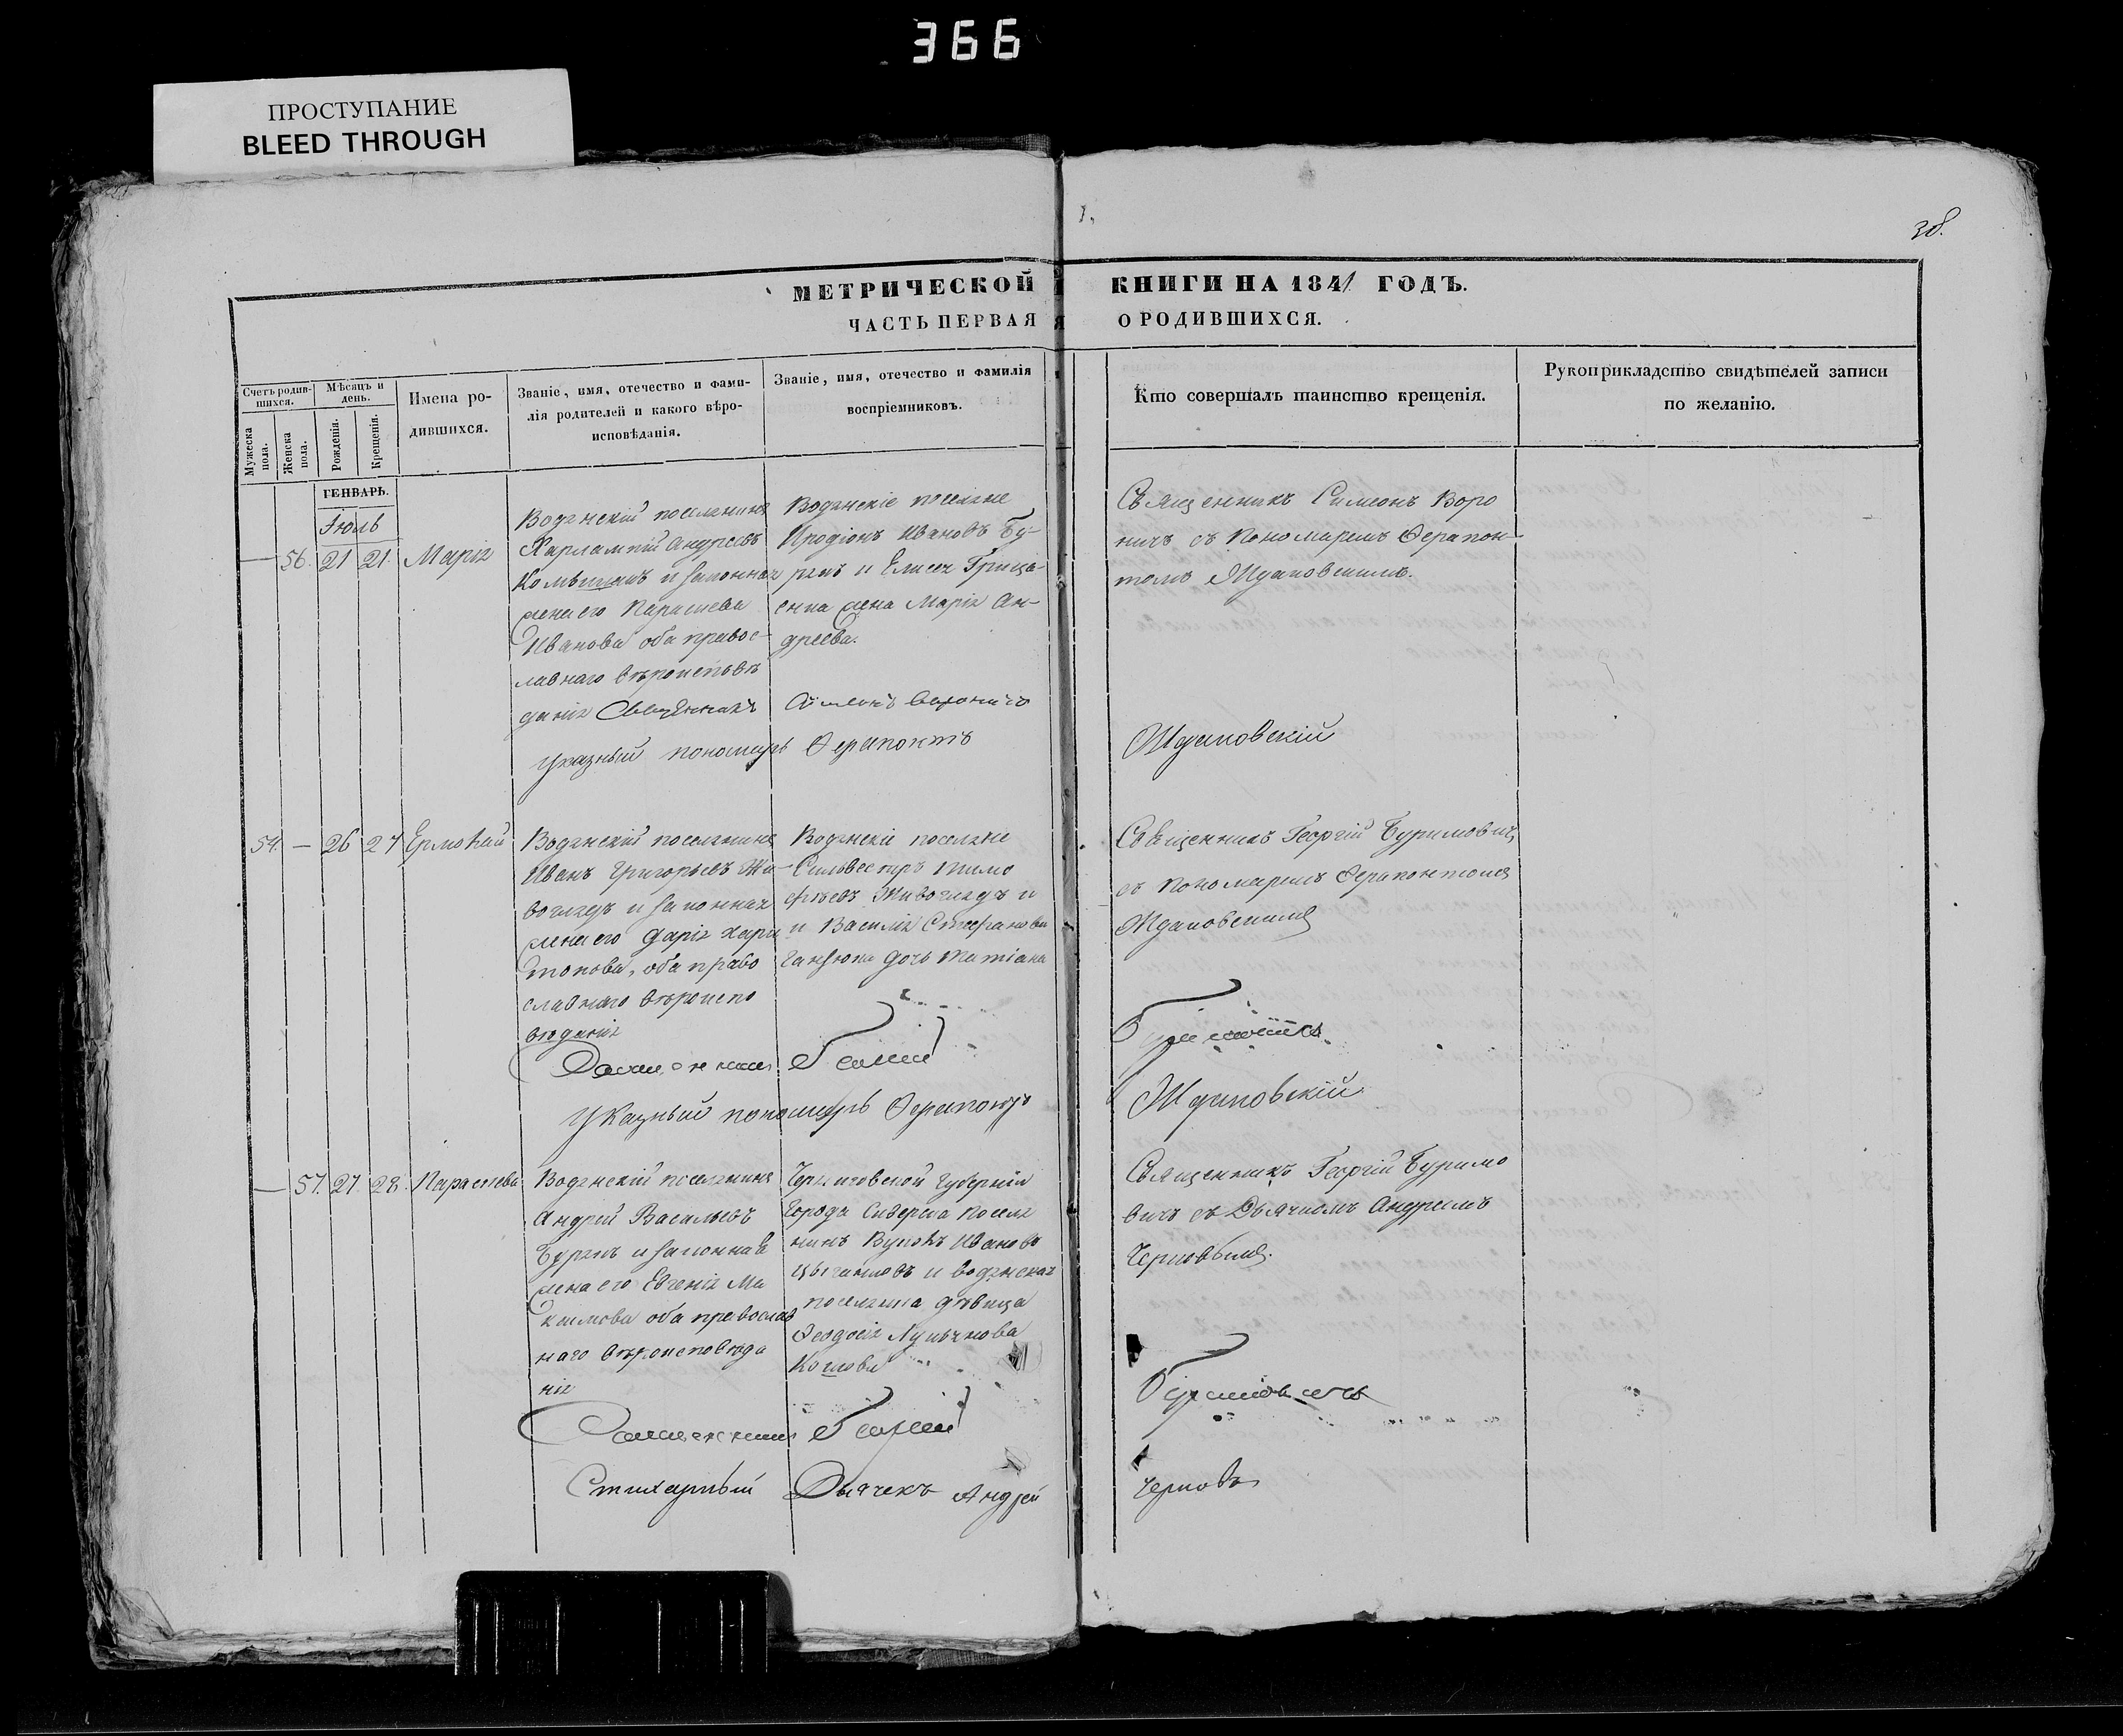 366
ПРОСТУПАНИЕ
BLEED THROUGH
38.
МЕТРИЧЕСКОЙ КНИГИ НА 1841 ГОДЪ.
ЧАСТЬ ПЕРВАЯ О РОДИВШИХСЯ.
Счетъ родив-
шихся.
Мужеска пола.
Женска пола.
Мѣсяцъ и
день.
Рожденія.
Крещенія.
Имена ро-
дившихся.
Званіе, имя, отечество и фами-
лія родителей и какого вѣро-
исповѣданія.
Званіе, имя, отечество и фамилія
воспріемниковъ.
Кто совершалъ таинство крещенія.
Рукоприкладство свидѣтелей записи
по желанію.
ГЕНВАРЬ.
Іюль
— 56. 21 21. Марія
Водянскій поселянинъ
Харлампій Андреевъ
и законная
жена его Параскева
Иванова оба правос-
лавнаго вѣроисповѣ
данія Священникъ
Водянскіе поселяне
Иродіонъ Ивановъ Бу-
рякъ и Елисея Грица-
енка жена Марія Ан-
дреева.
Симеонъ Вороничъ
указный пономарь Ферапонтъ
Священникъ Симеонъ Воро
ничъ съ Пономаремъ Ферапон-
томъ Ждановскимъ.
Ждановскій
54. — 26 27 Ермолай
Водянскій поселянинъ
Иванъ Григорьевъ Жи-
воглядъ и законная
жена его Дарія Хари
тонова, оба право
славнаго вѣроиспо
вѣданія
Водянскіе поселяне
Сильвестръ Тимо
фѣевъ Живоглядъ и
и Василія Стефанова
дочь Татіана
Священникъ Георгій
Указный пономарь Ферапонтъ
Священникъ Георгій Буримовичъ
съ Пономаремъ Ферапонтомъ
Ждановскимъ
Буримовичъ
Ждановскій
— 57. 27. 28. Параскева
Водянскій поселянинъ
Андрей Васильевъ
Бурякъ и законная
жена его Евгенія Ма
ксимова оба православ
наго вѣроисповѣда
нія
Черниговской Губерніи
Города Сиверска Поселя
нинъ Ивановъ
Цыганковъ и водянская
поселянка дѣвица
Феодосія Лукьянова
Священникъ Георгій
Стихарный Дьячекъ Андрей
Священникъ Георгій Буримо
вичъ съ Дьячкомъ Андреемъ
Черновымъ.
Буримовичъ
Черновъ